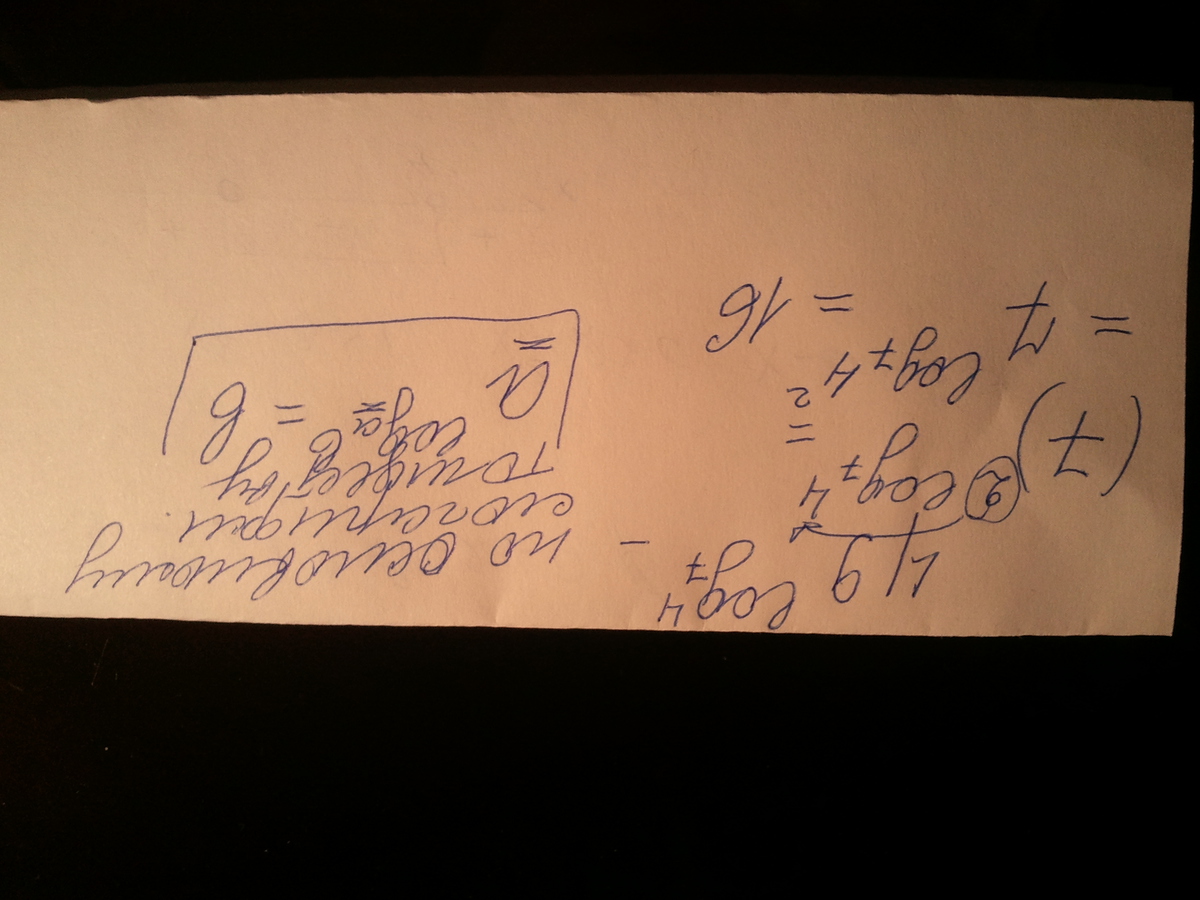 49 log₇4 –
(7)² log₇4 =
= 7 log₇4² = 16
по основному
логариф.
тождеству
a logₐb = b